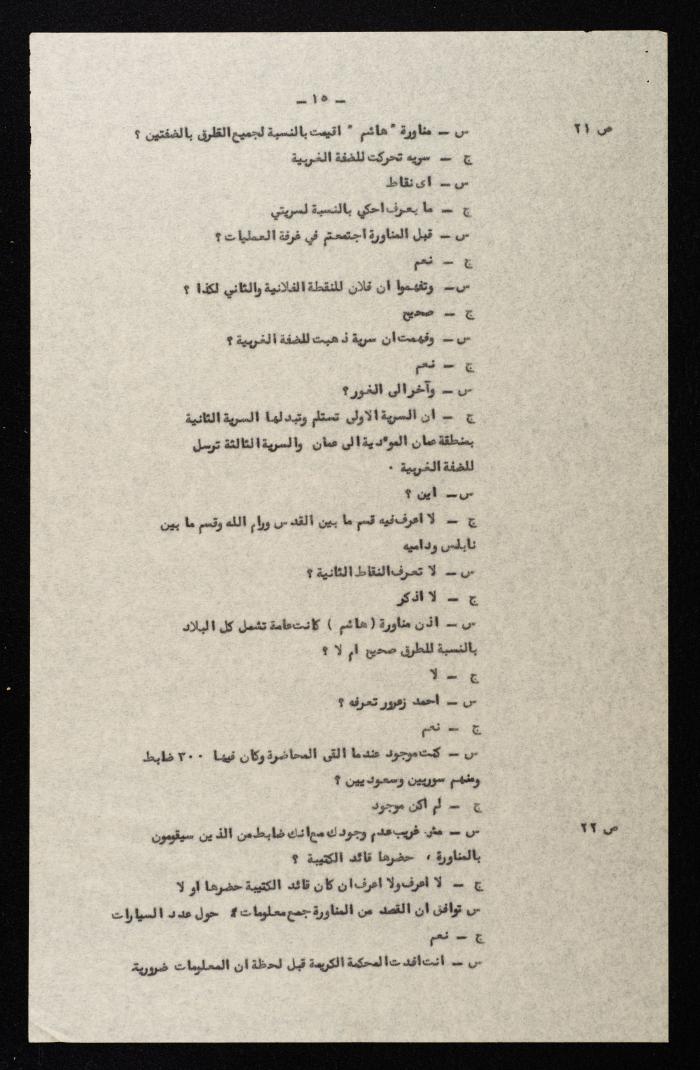 ـ ١٥ ـ
ص ٢١
س ـ مناورة " هاشم " اقيمت بالنسبة لجميع الطرق بالضفتين ؟
ج ـ سريه تحركت للضفة الغربية
س ـ اى نقاط
ج ـ ما بعرف احكي بالنسبة لسريتي
س ـ قبل المناورة اجتمعتم في غرفة العمليات ؟
ج ـ نعم
س ـ وتفهموا ان فلان للنقطة الفلانية والثاني لكذا ؟
ج ـ صحيح
س ـ وفهمت ان سرية ذهبت للضفة الغربية ؟
ج ـ نعم
س ـ وآخر الى الغور ؟
ج ـ ان السرية الاولى تستلم وتبدلها السرية الثانية
بمنطقة عمان المو٠دية الى عمان والسرية الثالثة ترسل
للضفة الغربية ٠
س ـ اين ؟
ج ـ لا اعرف فيه قسم ما بين القدس ورام الله وقسم ما بين
نابلس وداميه
س ـ لا تعرف النقاط الثانية ؟
ج ـ لا اذكر
س ـ اذن مناورة ( هاشم ) كانت عامة تشمل كل البلاد
بالنسبة للطرق صحيح ام لا ؟
ج ـ لا
س ـ احمد زعرور تعرفه ؟
ج ـ نعم
س ـ كنت موجود عندما القى المحاضرة وكان فيها ٣٠٠ ضابط
ومنهم سوريين وسعوديين ؟
ج ـ لم اكن موجود
ص ٢٢
س ـ مش غريب عدم وجودك مع انك ضابط من الذين سيقومون
بالمناورة ، حضرها قائد الكتيبة ؟
ج ـ لا اعرف ولا اعرف ان كان قائد الكتيبة حضرها او لا
س توافق ان القصد من المناورة جمع معلومات حول عدد السيارات
ج ـ نعم
س ـ انت افدت المحكمة الكريمة قبل لحظة ان المعلومات ضرورية